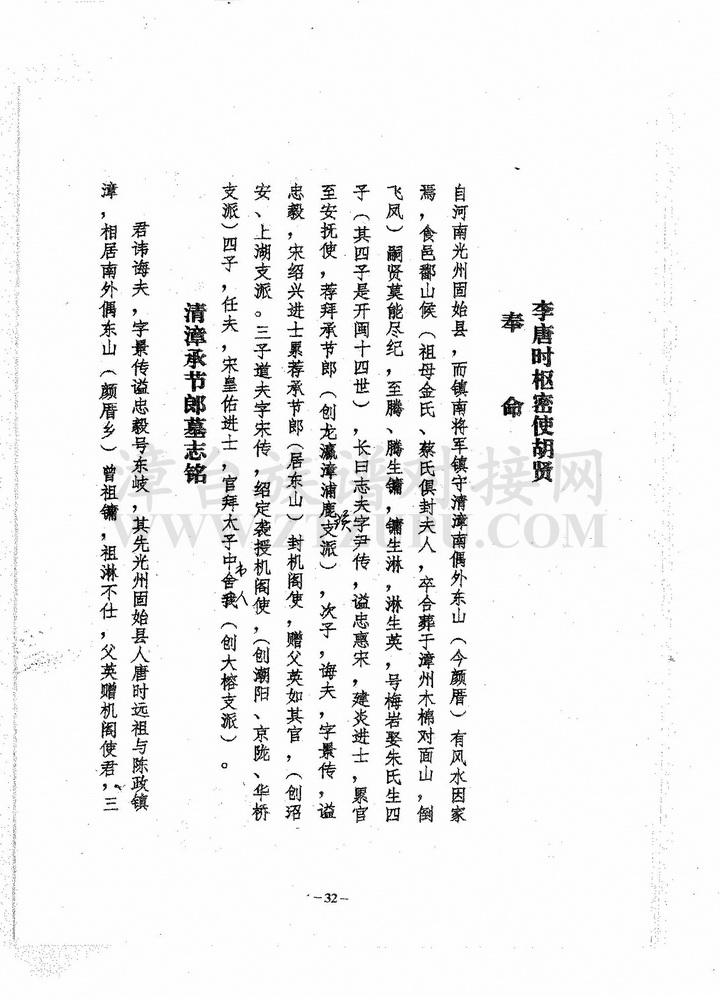 李唐时枢密使胡贤
奉命
自河南光州固始县，而镇南将军镇守清漳南偶外东山（今颜厝）有风水因家
焉，食邑鄱山候（祖母金氏、蔡氏俱封夫人，卒合葬于漳州木棉对面山，倒
飞凤）嗣贤莫能尽纪，至腾、腾生镛，镛生淋，淋生英，号梅岩娶朱氏生四
子（其四子是开闽十四世），长曰志夫字尹传，谥忠惠宋，建炎进士，累官
至安抚使，荐拜承节郎（创龙瀛漳浦鹿溪支派），次子，诲夫，字景传，谥
忠毅，宋绍兴进士累荐承节郎（居东山）封机阁使，赠父英如其官，（创沼
安、上湖支派。三子道夫字宋传，绍定袭授机阁使，（创潮阳、京陇、华桥
支派）四子，任夫，宋皇佑进士，官拜太子中舍书人（创大榕支派）。
清漳承节郎墓志铭
君讳诲夫，字景传谥忠毅号东岐，其先光州固始县人唐时远祖与陈政镇
漳，相居南外偶东山（颜厝乡）曾祖镛，祖淋不仕，父英赠机阁使君，三
-32-
漳台族谱对接网
WWW.ZTZUPU.COM